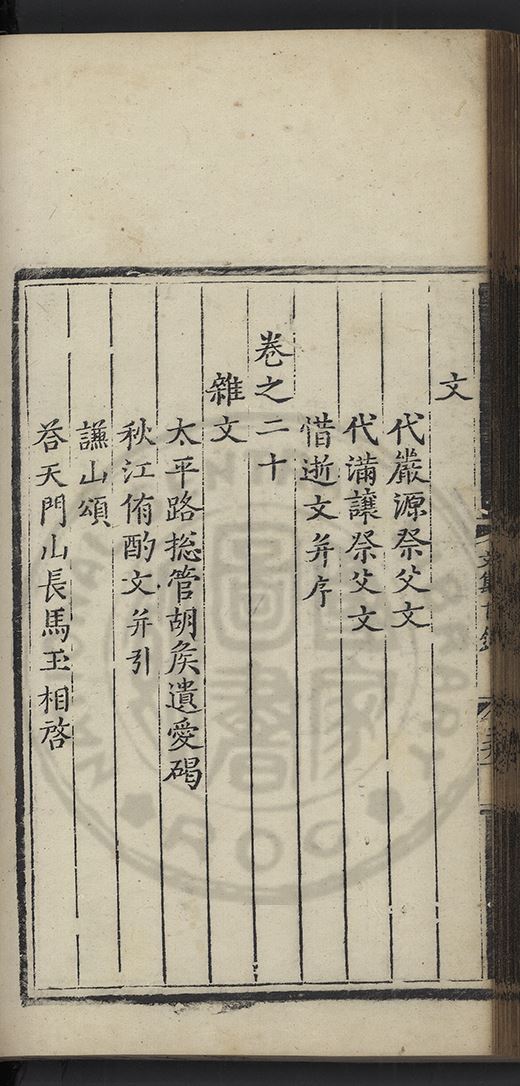 文
代嚴源祭父文
代滿讓祭父文
惜逝文并序
卷之二十
雜文
太平路揔管胡矦遺愛碣
秋江侑酌文并引
謙山頌
荅天門山長馬玉相啓